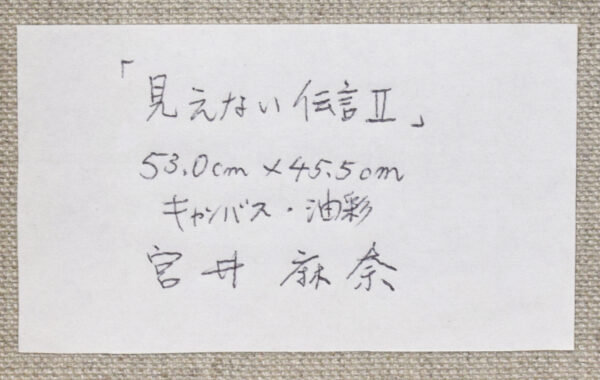 「見えない伝言Ⅱ」
53.0cm×45.5cm
キャンバス・油彩
宮井麻奈